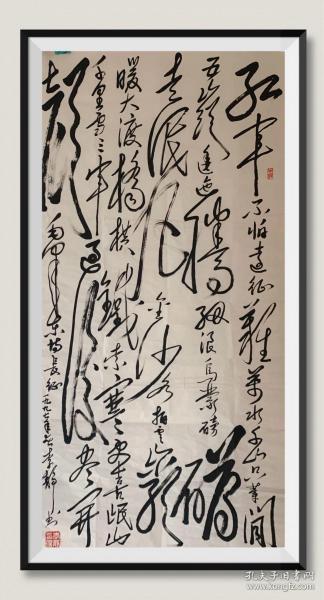 红军不怕远征难万水千山只等闲
五岭逶迤腾细浪乌蒙磅礴
走泥丸金沙水拍云崖
暖大渡桥横铁索寒更喜岷山
千里雪三军过后尽开
颜 长征一九九七年 书
孔夫子旧书网